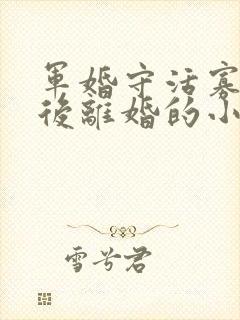 軍婚守活寡
後離婚的小
雪兮君